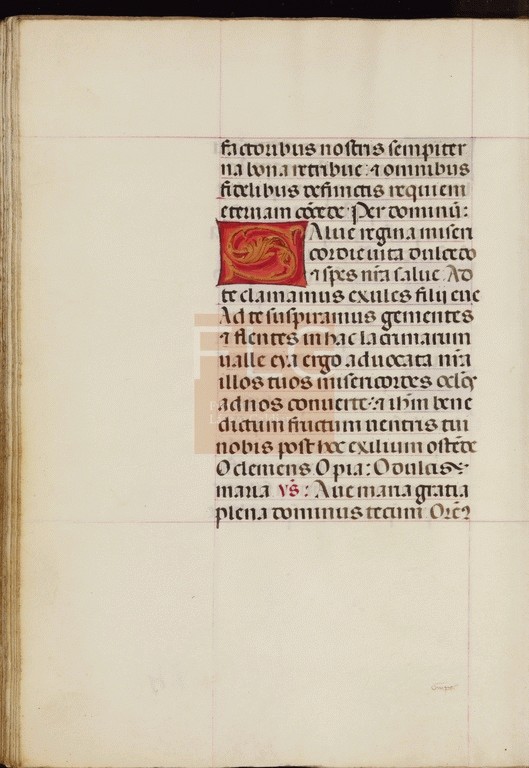 factoribus nostris sempiter
na bona retribue: ⁊ omnibus
fidelibus defunctis requiem
eternam cōcede: Per dominū:
SAlue regina miseri
cordie uita dulcedo
⁊ spes nr̄a salue. Ad
te clamamus exules filij eue
Ad te suspiramus gementes
⁊ flentes in hac lacrimarum
ualle eya ergo aduocata nr̄a
illos tuos misericordes
ad nos conuerte: ⁊ ihm̄ bene
dictum fructum uentris tui
nobis post hoc exilium ostēde
O clemens O pia: O dulcis
maria vs̄: Aue maria gratia
plena dominus tecum